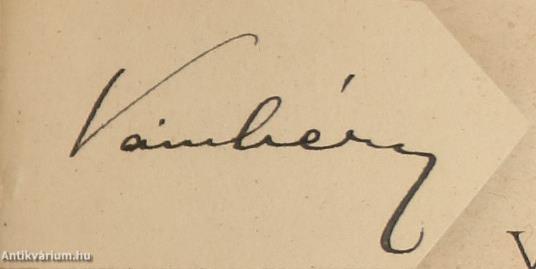 Vámbéry
Antikvárium.hu
V